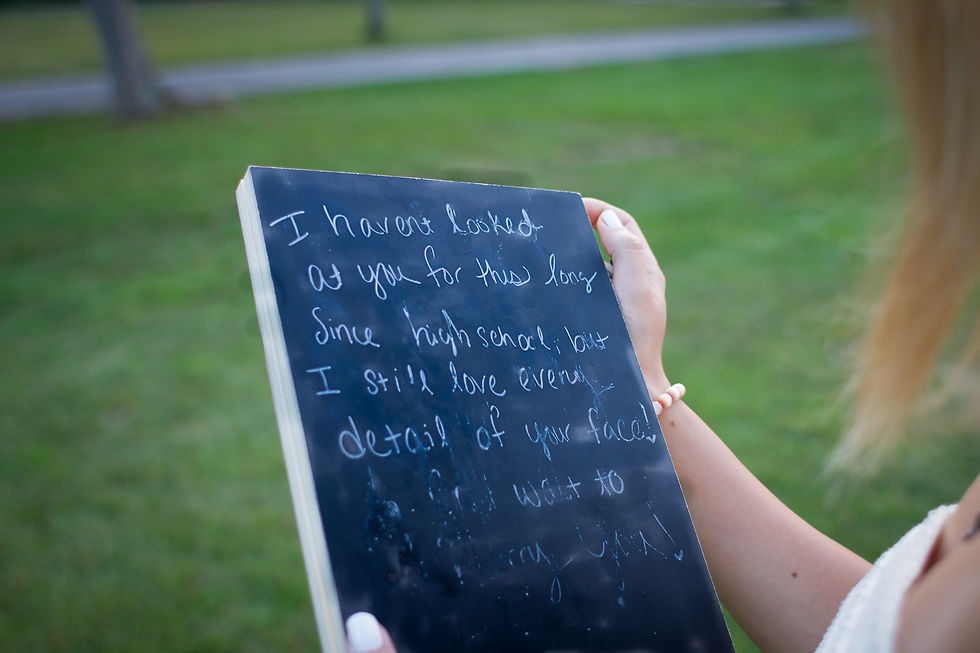 I havent looked
at you for this long
Since high school, but
I still love every
detail of your face!
wait to
marry you!